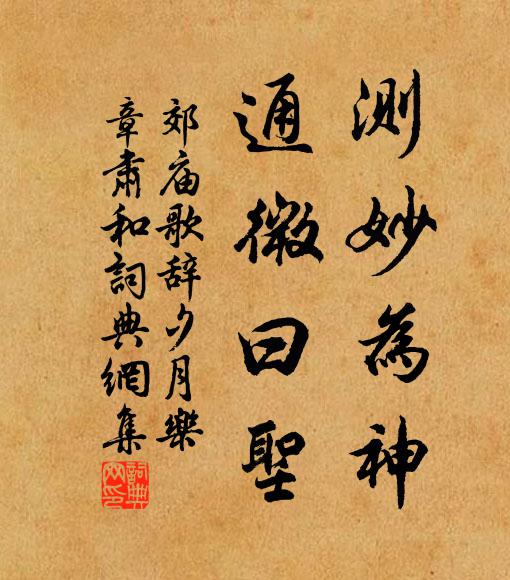 測妙為神
通微曰聖
郊庙歌辞夕月樂
章肅和詞典網集
詞典
网印